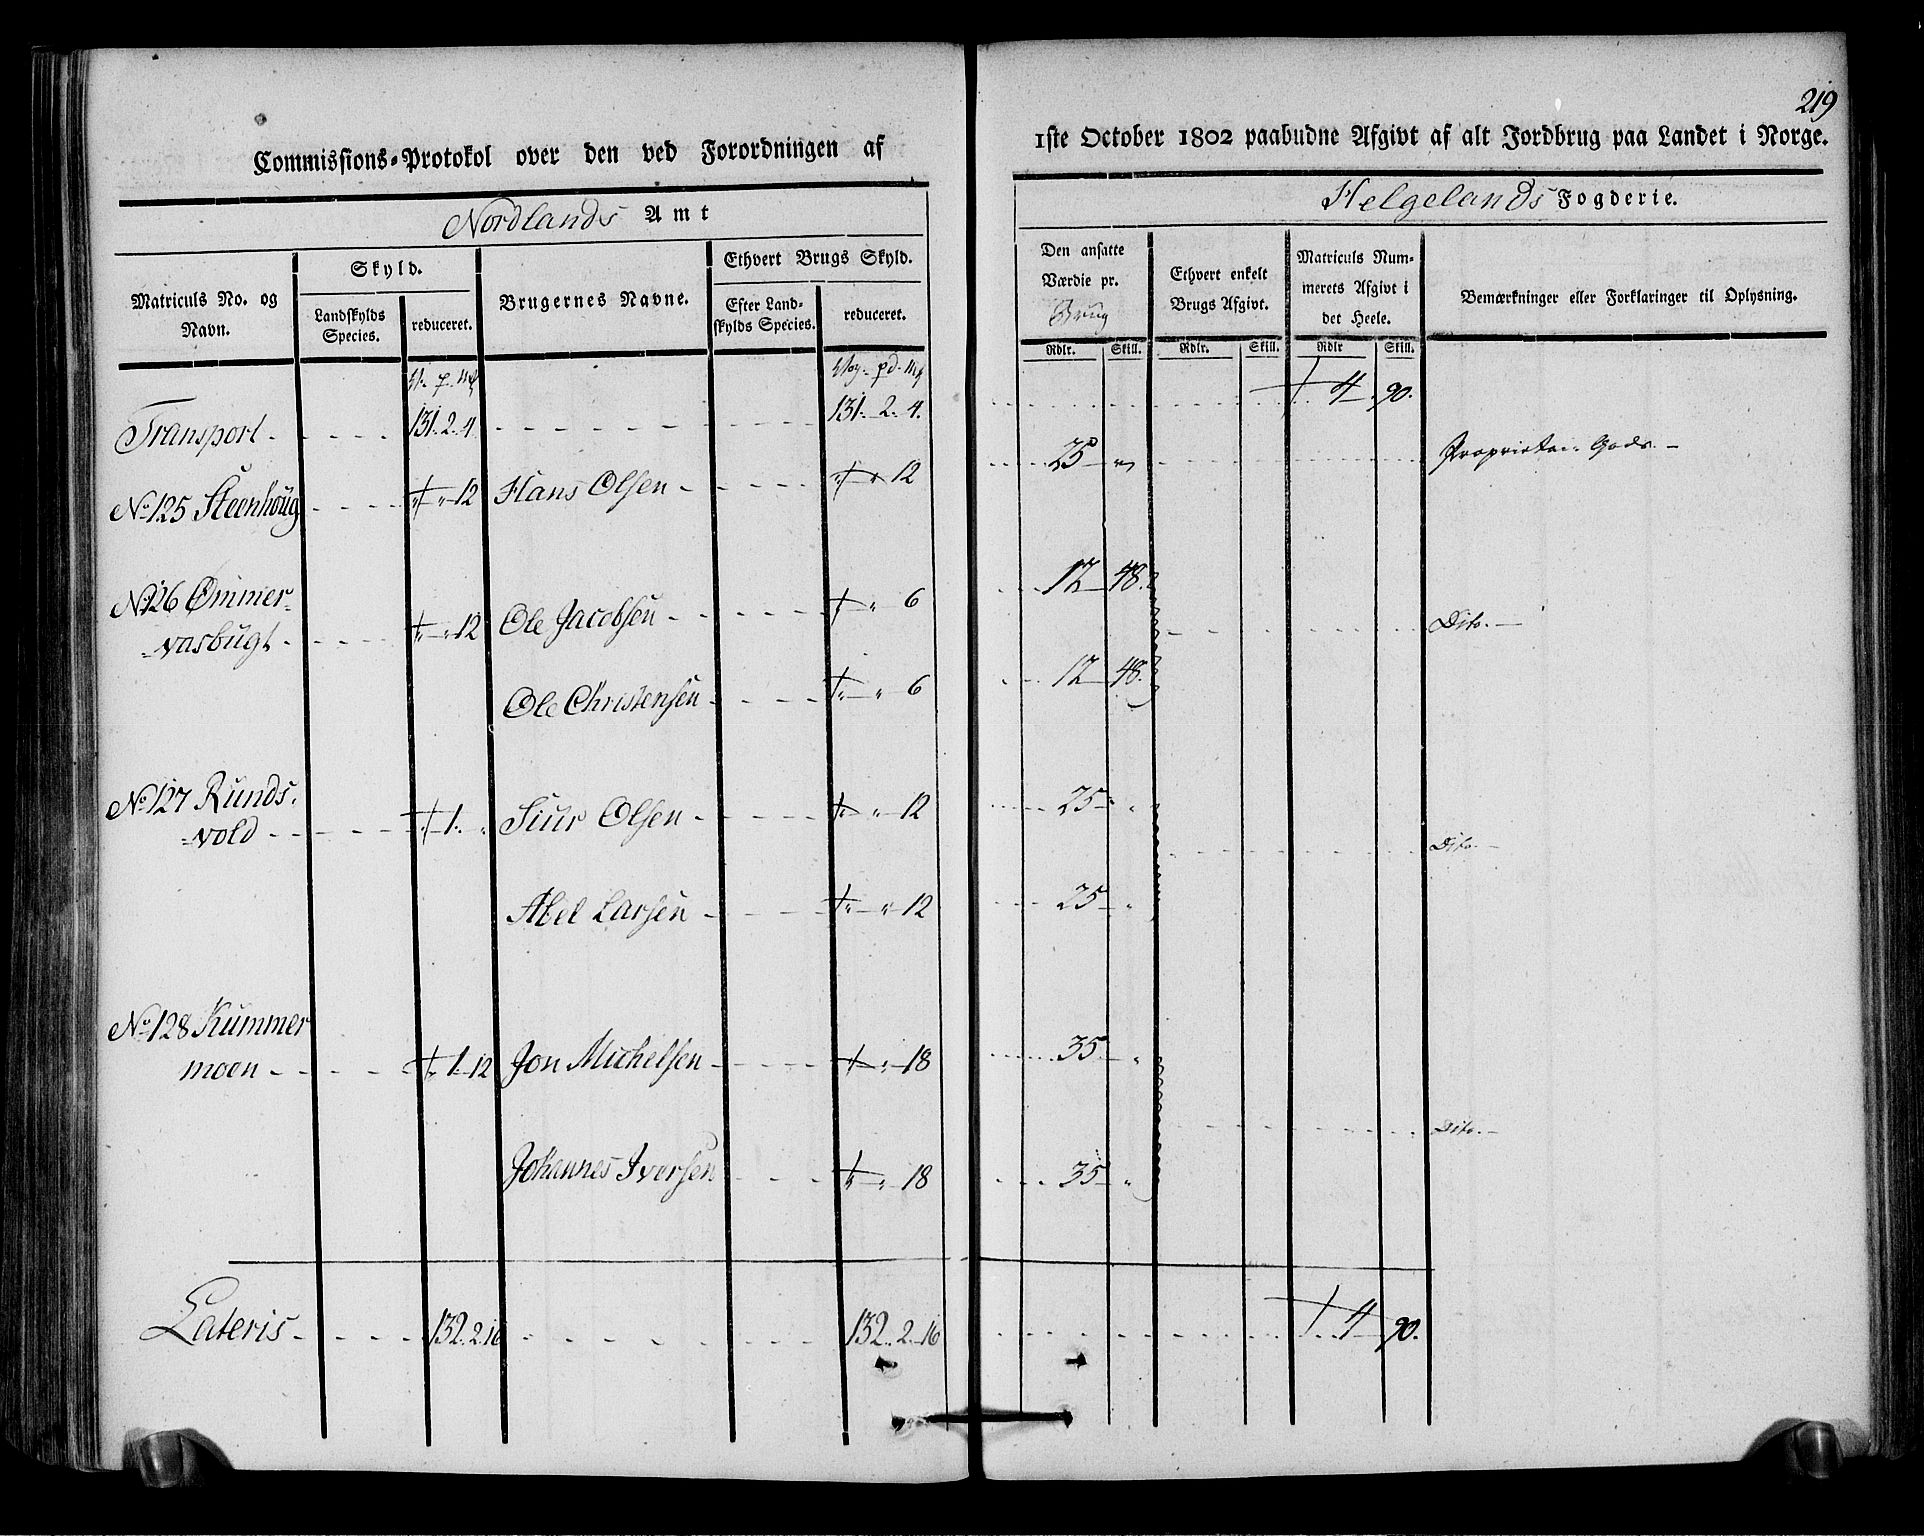 219
Commissions-Protokol over den ved Forordningen af
1ste October 1802 paabudne Afgivt af alt Jordbrug paa Landet i Norge.
Nordlands Amt
Helgelands Fogderie.
Matriculs No. og Navn.
Skyld.
Landskylds Species.
reduceret.
Brugernes Navne.
Ethvert Brugs Skyld.
Efter Landskylds Species.
reduceret.
Den ansatte Værdie pr. Brug
Ethvert enkelt Brugs Afgivt.
Matriculs Nummerets Afgivt i det Heele.
Bemærkninger eller Forklaringer til Oplysning.
Rdlr. Skill. Rdlr. Skill. Rdlr Skill.
Transport 131. 2. 4 131. 2. 4. 4 90.
No. 125 Steenhoug 12 Hans Olsen 12 25 Proprietair Gods.
No. 126 Ommer-
-vasbugt 12 Ole Jacobsen 6 12 48. Dito.
Ole Christensen 6 12 48.
No. 127 Runds-
-vold 1. Siur Olsen 12 25 Dito.
Abel Larsen 12 25
No. 128 Kummer
moen 1 12 Jon Michelsen 18 35 Dito.
Johannes Iversen 18 35
Lateris 132. 2. 16 132. 2. 16 4 90.